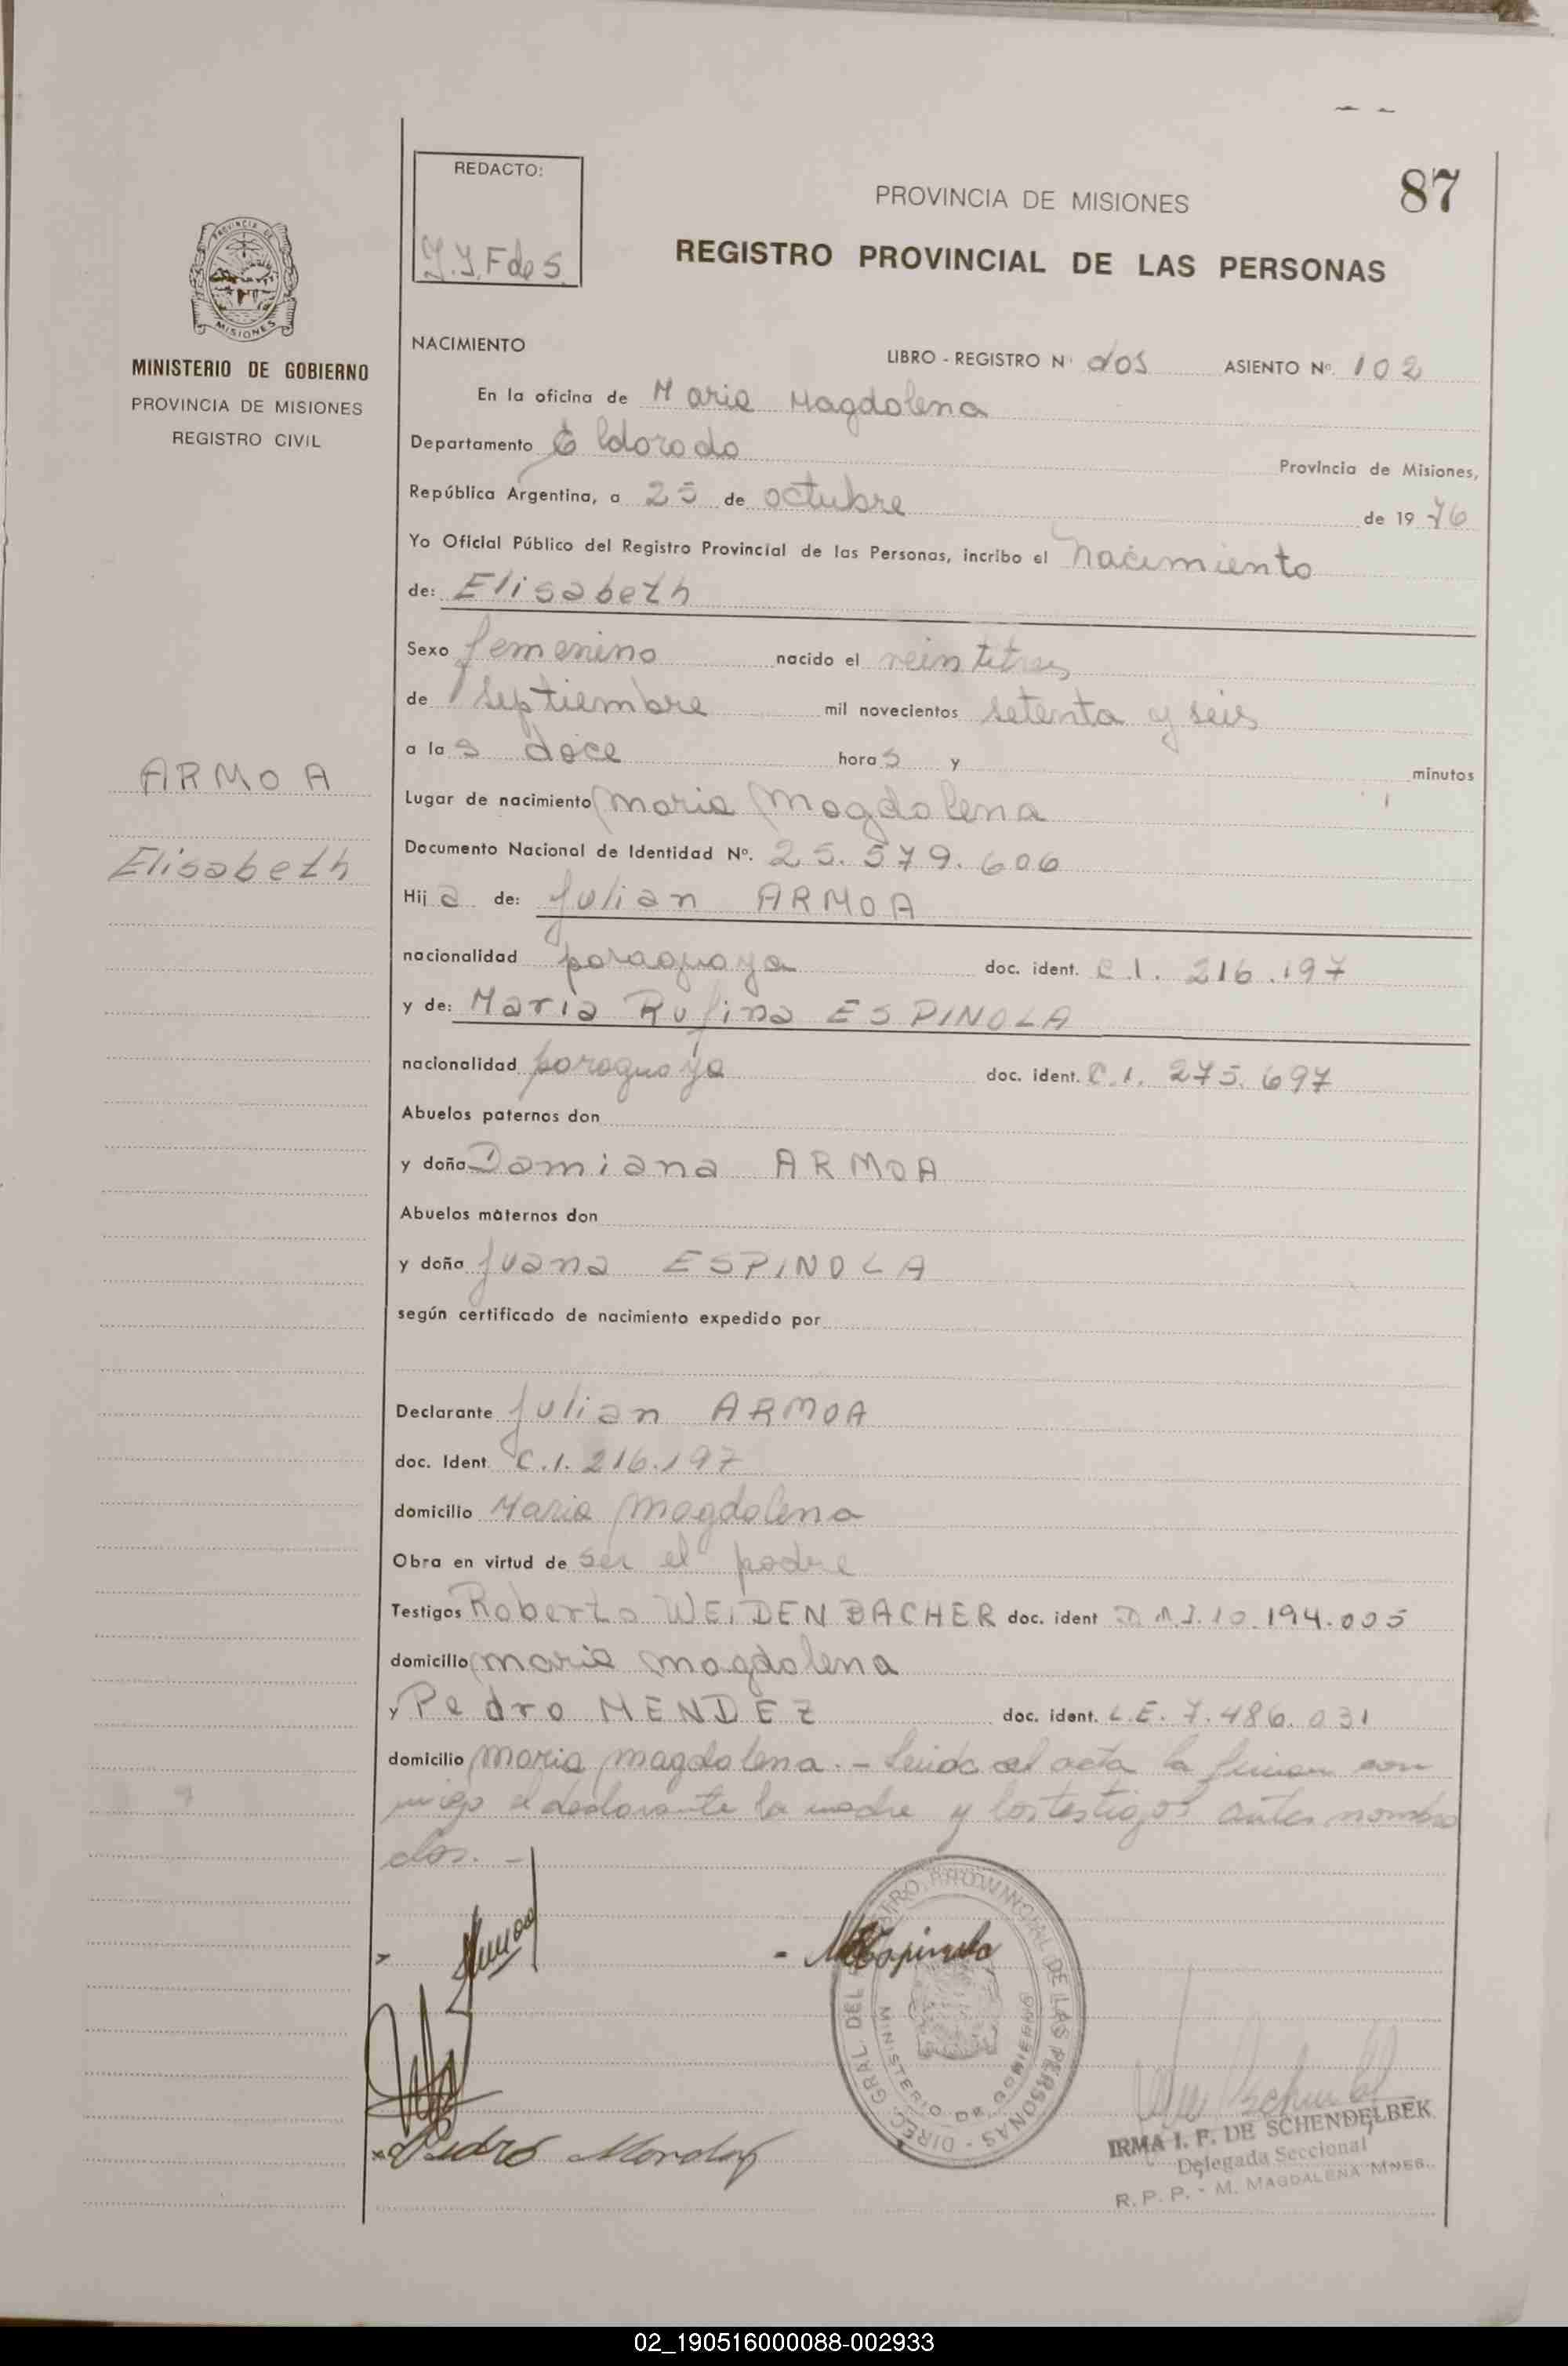 REDACTO:
PROVINCIA DE MISIONES
87
REGISTRO PROVINCIAL DE LAS PERSONAS
PROVINCIA DE
MISIONES
MINISTERIO DE GOBIERNO
PROVINCIA DE MISIONES
REGISTRO CIVIL
NACIMIENTO
LIBRO - REGISTRO Nº dos ASIENTO Nº. 102
En la oficina de Maria Magdalena
Departamento Eldorado Provincia de Misiones,
República Argentina, a 25 de octubre de 1976
Yo Oficial Público del Registro Provincial de las Personas, incribo el nacimiento
de: Elisabeth
Sexo femenino nacido el veintitres
de septiembre mil novecientos setenta y seis
a las doce horas y minutos
ARMOA
Elisabeth
Lugar de nacimiento Maria Magdalena
Documento Nacional de Identidad Nº. 25.579.606
Hija de: Julian ARMOA
nacionalidad paraguaya doc. ident. C.I. 216.197
y de: Maria Rufina ESPINOLA
nacionalidad paraguaya doc. ident. C.I. 275.697
Abuelos paternos don
y doña Damiana ARMOA
Abuelos maternos don
y doña Juana ESPINOLA
según certificado de nacimiento expedido por
Declarante Julian ARMOA
doc. Ident. C.I. 216.197
domicilio Maria Magdalena
Obra en virtud de ser el padre
Testigos Roberto WEIDENBACHER doc. ident D.N.I. 10.194.005
domicilio Maria Magdalena
y Pedro MENDEZ doc. ident. L.E. 7.486.031
domicilio Maria Magdalena. - Leida el acta la firman con
migo el declarante la madre y los testigos antes nombra
dos. -
MEspinola
DIREC. GRAL. DEL REGISTRO PROVINCIAL DE LAS PERSONAS -
MINISTERIO DE GOBIERNO
Pedro
IRMA I. F. DE SCHENDELBEK
Delegada Seccional
R. P. P. - M. MAGDALENA MNES.
02_190516000088-002933